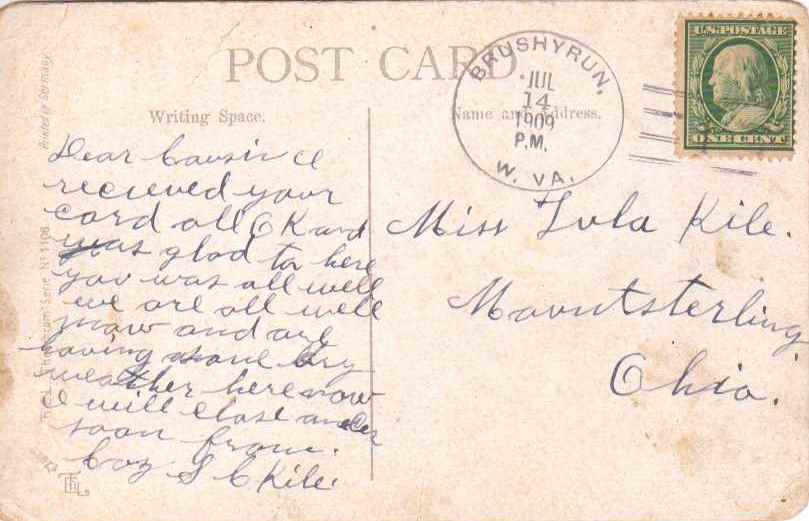 POST CARD
BRUSHYRUN,
JUL
14
1909
P.M.
W. VA.
U.S. POSTAGE
ONE CENT
Printed in Germany
Writing Space.
Name and Address.
Dear Cousin I
recieved your
card all OK and
was glad to here
you was all well
we are all well
now and are
having some dry
weather here now
I will close
soon from.
Coz S C Kile.
Miss Lula Kile.
Mountsterling
Ohio.